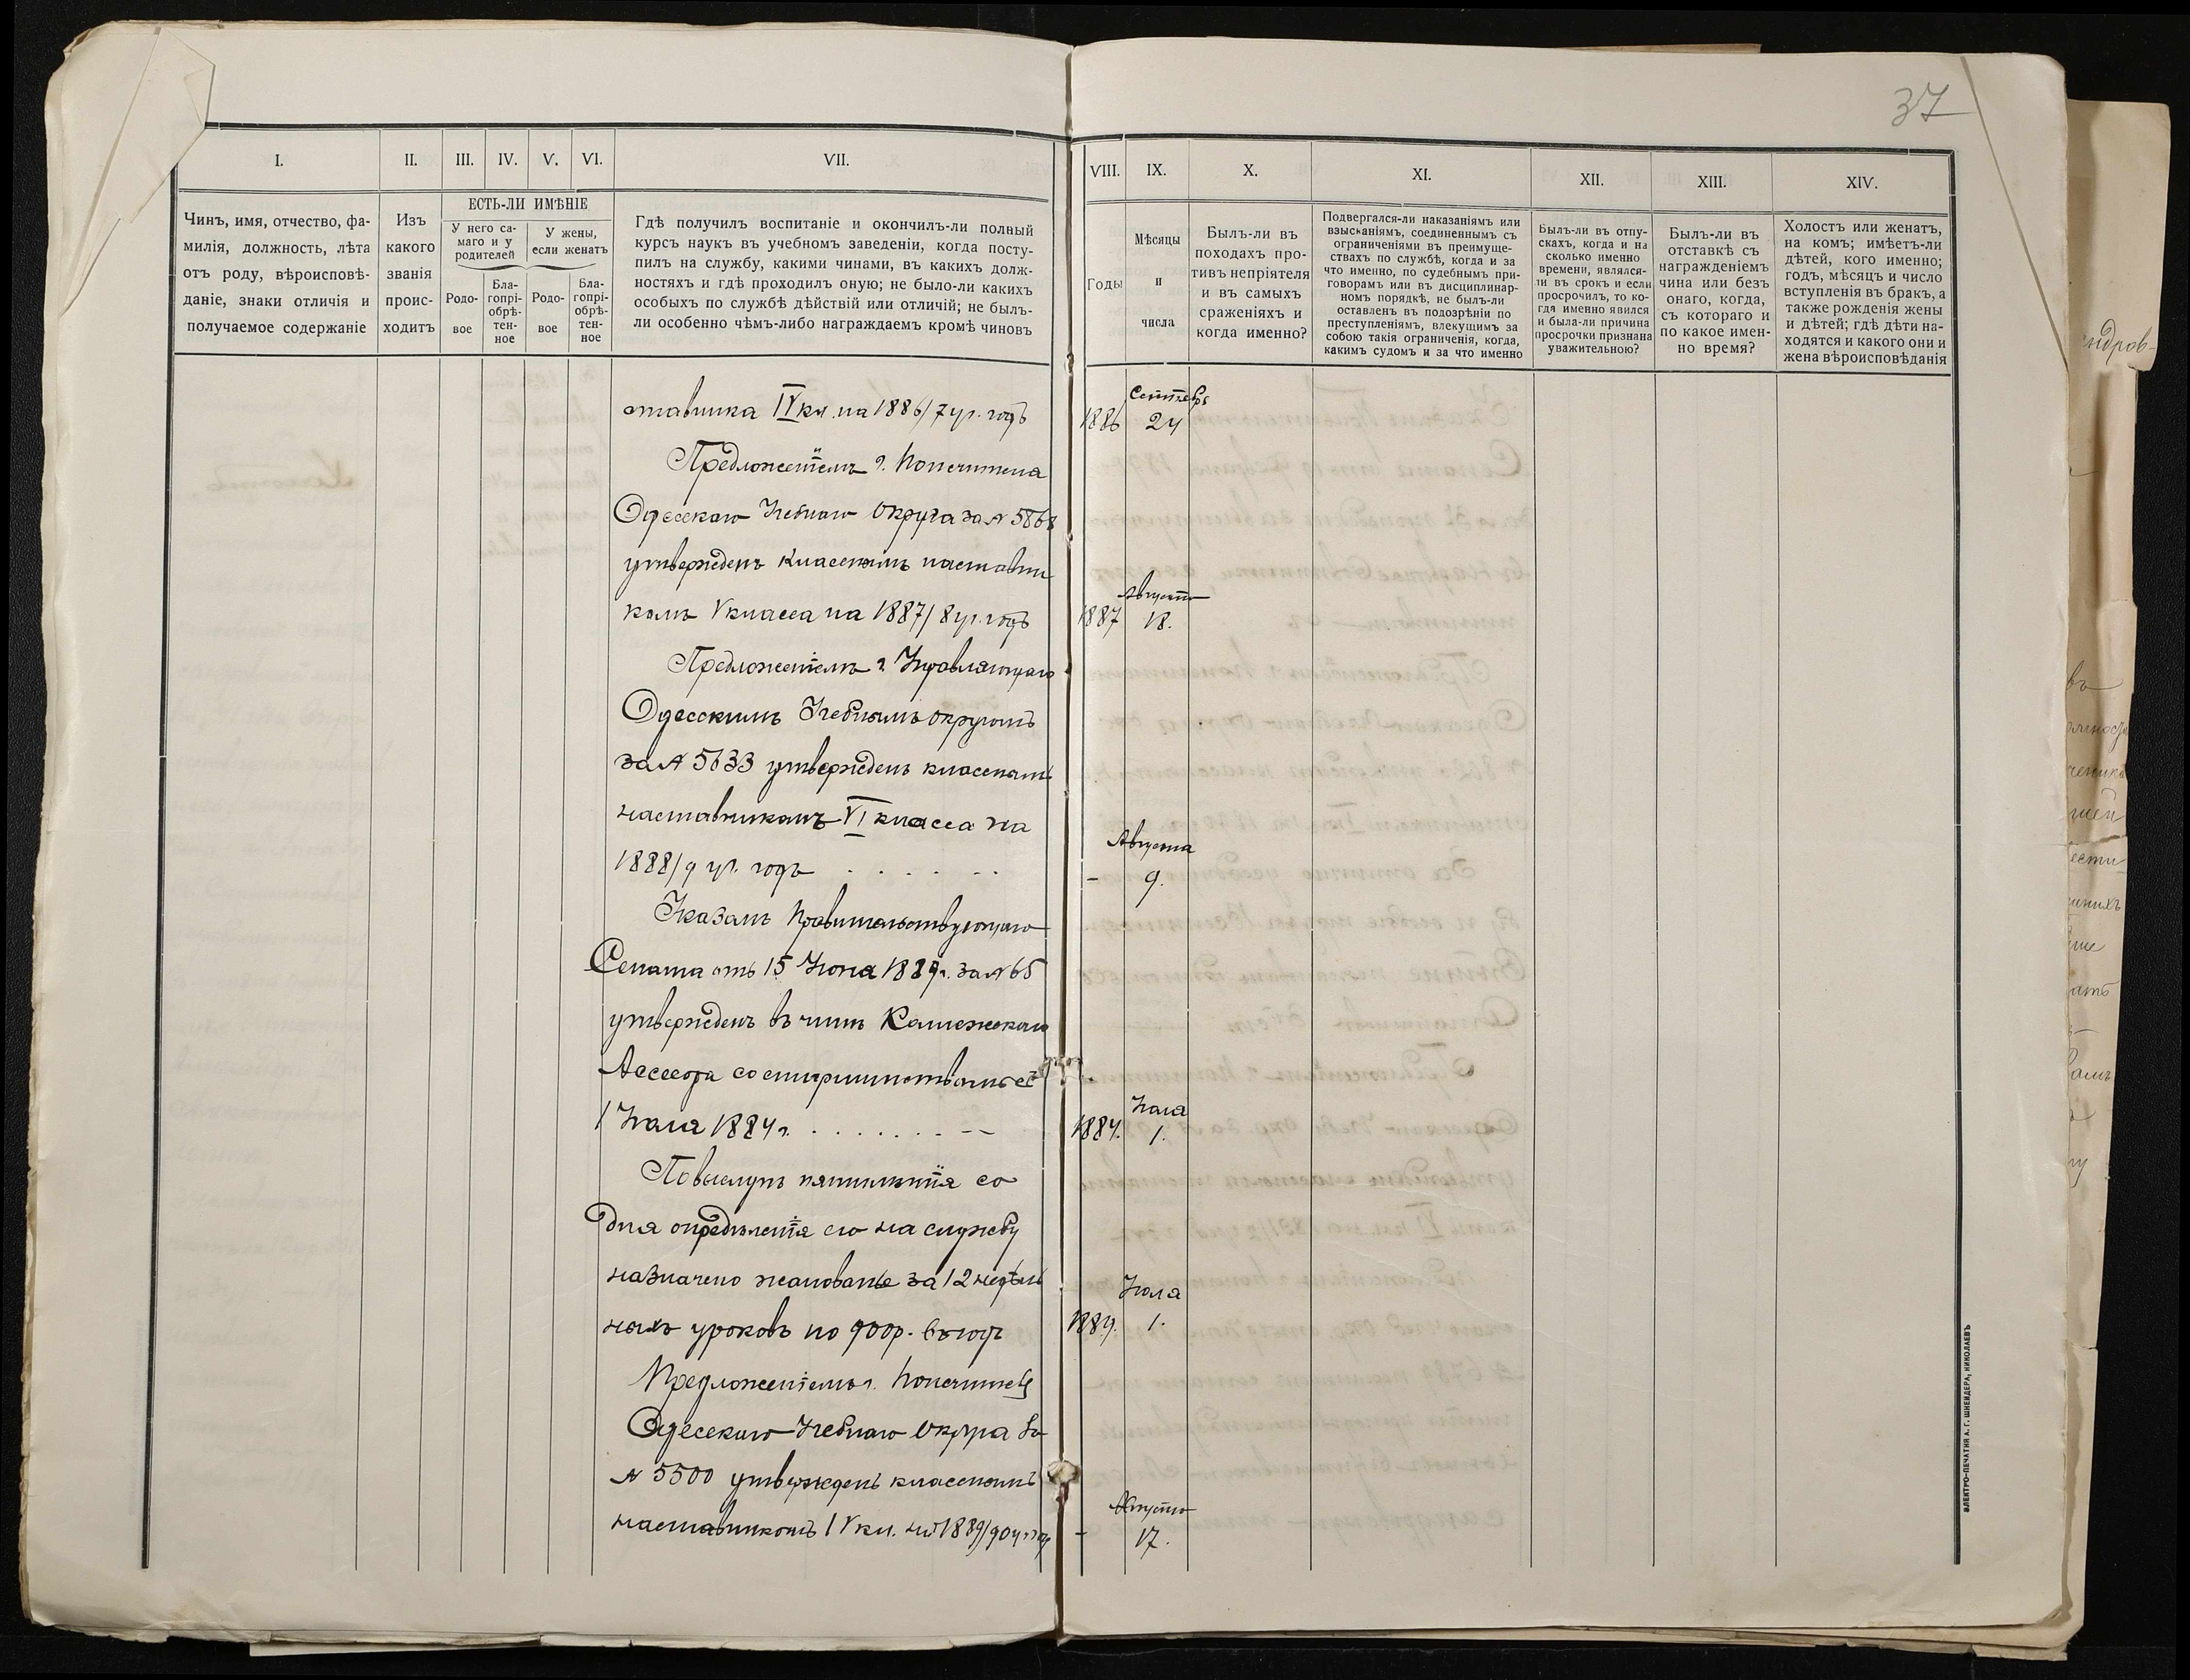 37
I. II. III. IV. V. VI. VII. VIII. IX. X. XI. XII. XIII. XIV.
Чинъ, имя, отчество, фа-
милія, должность, лѣта
отъ роду, вѣроисповѣ-
даніе, знаки отличія и
получаемое содержаніе
Изъ
какого
званія
проис-
ходитъ
ЕСТЬ-ЛИ ИМѢНІЕ
У него са-
маго и у
родителей
У жены,
если женатъ
Родо-
вое
Бла-
гопрі-
обрѣ-
тен-
ное
Родо-
вое
Бла-
гопрі-
обрѣ-
тен-
ное
Гдѣ получилъ воспитаніе и окончилъ-ли полный
курсъ наукъ въ учебномъ заведеніи, когда посту-
пилъ на службу, какими чинами, въ какихъ долж-
ностяхъ и гдѣ проходилъ оную; не было-ли какихъ
особыхъ по службѣ дѣйствій или отличій; не былъ-
ли особенно чѣмъ-либо награждаемъ кромѣ чиновъ
Годы
Мѣсяцы
и
числа
Былъ-ли въ
походахъ про-
тивъ непріятеля
и въ самыхъ
сраженіяхъ и
когда именно?
Подвергался-ли наказаніямъ или
взысканіямъ, соединеннымъ съ
ограниченіями въ преимуще-
ствахъ по службѣ, когда и за
что именно, по судебнымъ при-
говорамъ или въ дисциплинар-
номъ порядкѣ, не былъ-ли
оставленъ въ подозрѣніи по
преступленіямъ, влекущимъ за
собою такія ограниченія, когда,
какимъ судомъ и за что именно
Былъ-ли въ отпу-
скахъ, когда и на
сколько именно
времени, являлся-
ли въ срокъ и если
просрочилъ, то ко-
гда именно явился
и была-ли причина
просрочки признана
уважительною?
Былъ-ли въ
отставкѣ съ
награжденіемъ
чина или безъ
онаго, когда,
съ котораго и
по какое имен-
но время?
Холостъ или женатъ,
на комъ; имѣетъ-ли
дѣтей, кого именно;
годъ, мѣсяцъ и число
вступленія въ бракъ, а
также рожденія жены
и дѣтей; гдѣ дѣти на-
ходятся и какого они и
жена вѣроисповѣданія
ставника IV кл. на 1886/7 уч. годъ
1886 Сентябрь 24
Предложеніемъ г. Попечителя
Одесскаго Учебнаго Округа за № 5868
утвержденъ класснымъ наставни
комъ V класса на 1887/8 уч. годъ
1887 Августа 18.
Предложеніемъ г. Управляющаго
Одесскимъ Учебнымъ Округомъ
за № 5633 утвержденъ класснымъ
наставникомъ VI класса на
1888/9 уч. годъ . . . . . .
– Августа 9.
Указомъ Правительствующаго
Сената отъ 15 Июня 1889 г. за № 65
утвержденъ въ чинѣ Коллежскаго
Ассесора со старшинствомъ съ
1 Июля 1884 г. . . . . . . . – –
1884. Июля 1.
По выслугѣ пятилѣтія со
дня опредѣленія его на службу
назначено жалованье за 12 недѣль
ныхъ уроковъ по 900 р. въ годъ
1889. Июля 1.
Предложеніемъ г. Попечителя
Одесскаго Учебнаго Округа за
№ 5500 утвержденъ класснымъ
наставникомъ IV кл. на 1889/90 уч. годъ
– Августа 17.
ЭЛЕКТРО-ПЕЧАТНЯ А. Г. ШНЕЙДЕРА, НИКОЛАЕВЪ